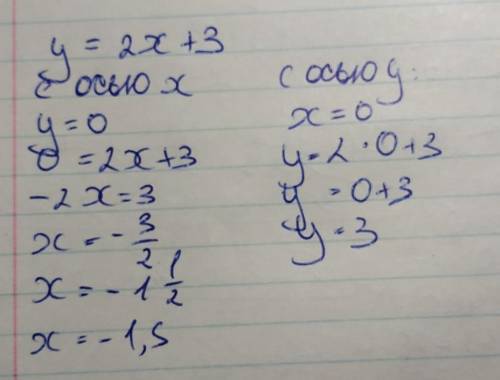 y = 2x + 3
С осью x
y = 0
0 = 2x + 3
-2x = 3
x = - 3/2
x = - 1 1/2
x = - 1,5
С осью y:
x = 0
y = 2 · 0 + 3
y = 0 + 3
y = 3